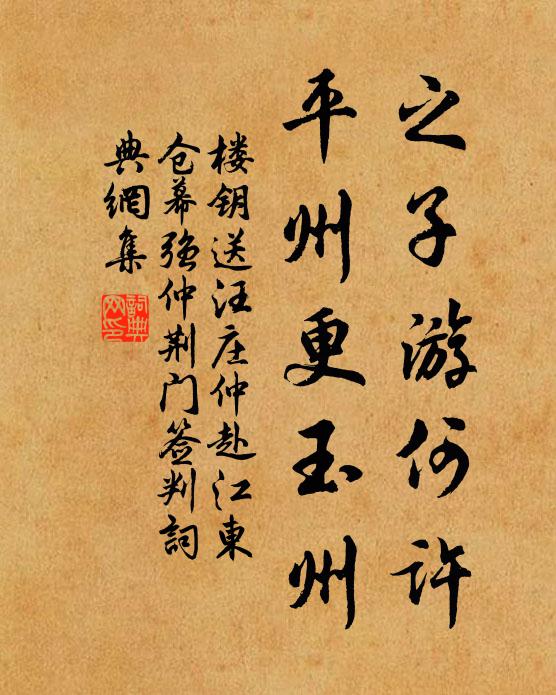 之子游何许
平州更玉州
楼钥送汪庄仲赴江東
仓幕強仲荆门签判詞
典網集
詞典网印